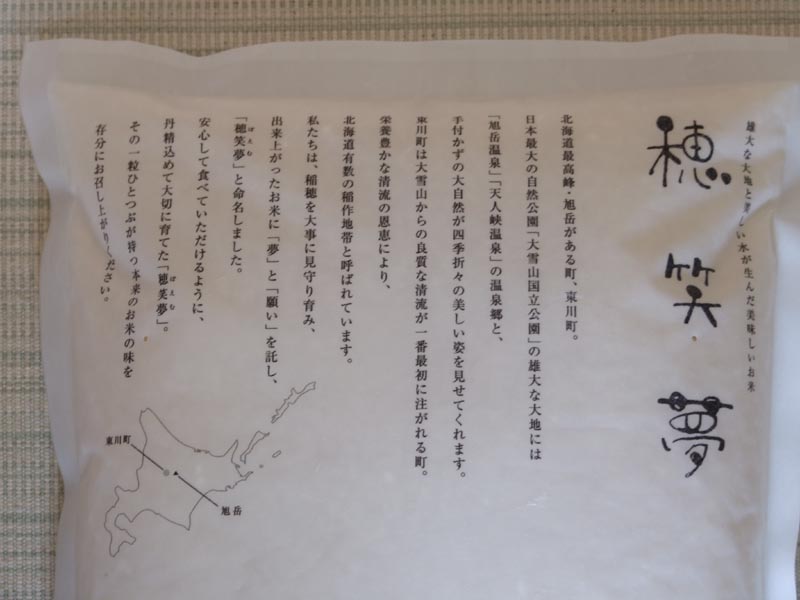 雄大な大地と美しい水が生んだ美味しいお米
穂笑夢
北海道最高峰・旭岳がある町、東川町。
日本最大の自然公園「大雪山国立公園」の雄大な大地には
「旭岳温泉」「天人峡温泉」の温泉郷と、
手付かずの大自然が四季折々の美しい姿を見せてくれます。
東川町は大雪山からの良質な清流が一番最初に注がれる町。
栄養豊かな清流の恩恵により、
北海道有数の稲作地帯と呼ばれています。
私たちは、稲穂を大事に見守り育み、
出来上がったお米に「夢」と「願い」を託し、
「穂笑夢」と命名しました。
安心して食べていただけるように、
丹精込めて大切に育てた「穂笑夢」。
その一粒ひとつぶが持つ本来のお米の味を
存分にお召し上がりください。
東川町
旭岳